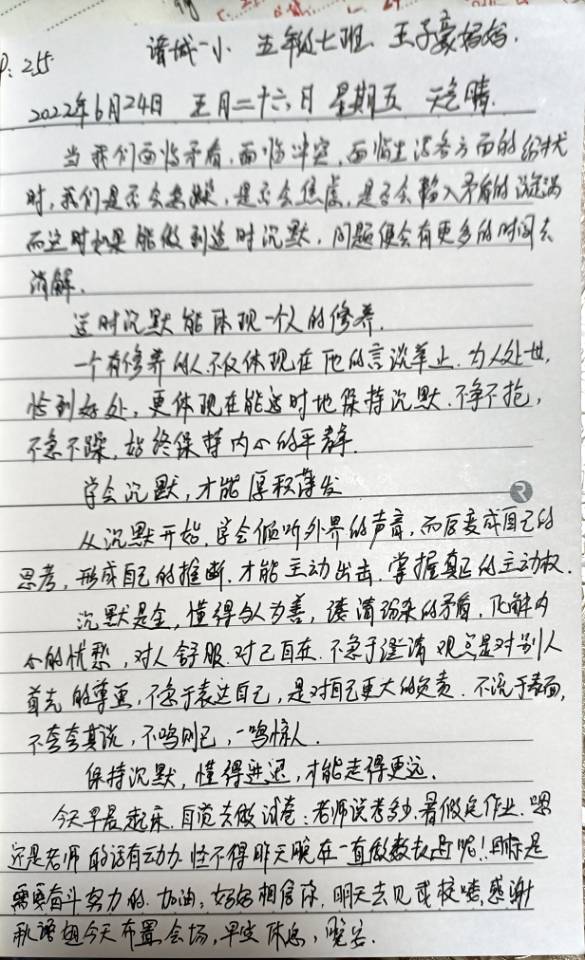 P: 255
诸城一小 五年级七班 王子豪妈妈.
2022年6月24日 五月二十六日 星期五 天气晴.
当我们面临矛盾,面临冲突,面临生活各方面的纷扰
时,我们是否会焦虑,是否会陷入矛盾的漩涡
而这时如果能做到适时沉默,问题便会有更多的时间去
消解.
适时沉默能体现一个人的修养.
一个有修养的人不仅体现在他的言谈举止.为人处世,
恰到好处,更体现在能适时地保持沉默.不争不抢,
不急不躁,始终保持内心的平静.
学会沉默,才能厚积薄发
从沉默开始,学会倾听外界的声音,而后变成自己的
思考,形成自己的推断.才能主动出击.掌握真正的主动权.
沉默是金,懂得与人为善,读清纷杂的矛盾,化解内
心的忧愁,对人舒服.对己自在.不急于澄清观点是对别人
首先的尊重,不急于表达自己,是对自己更大的负责.不流于表面,
不夸夸其谈,不鸣则已,一鸣惊人.
保持沉默,懂得进退,才能走得更远.
今天早晨起床,自觉去做试卷:老师说考多少.暑假免作业.嗯
还是老师的话有动力.怪不得昨天晚在一直做数去呢!目标是
需要奋斗努力的.加油,妈妈相信你,明天去见成校喽,感谢
秋语姐今天布置会场,早安休息,晚安.